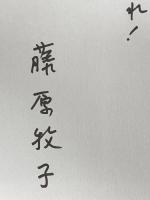 れ！
藤原牧子